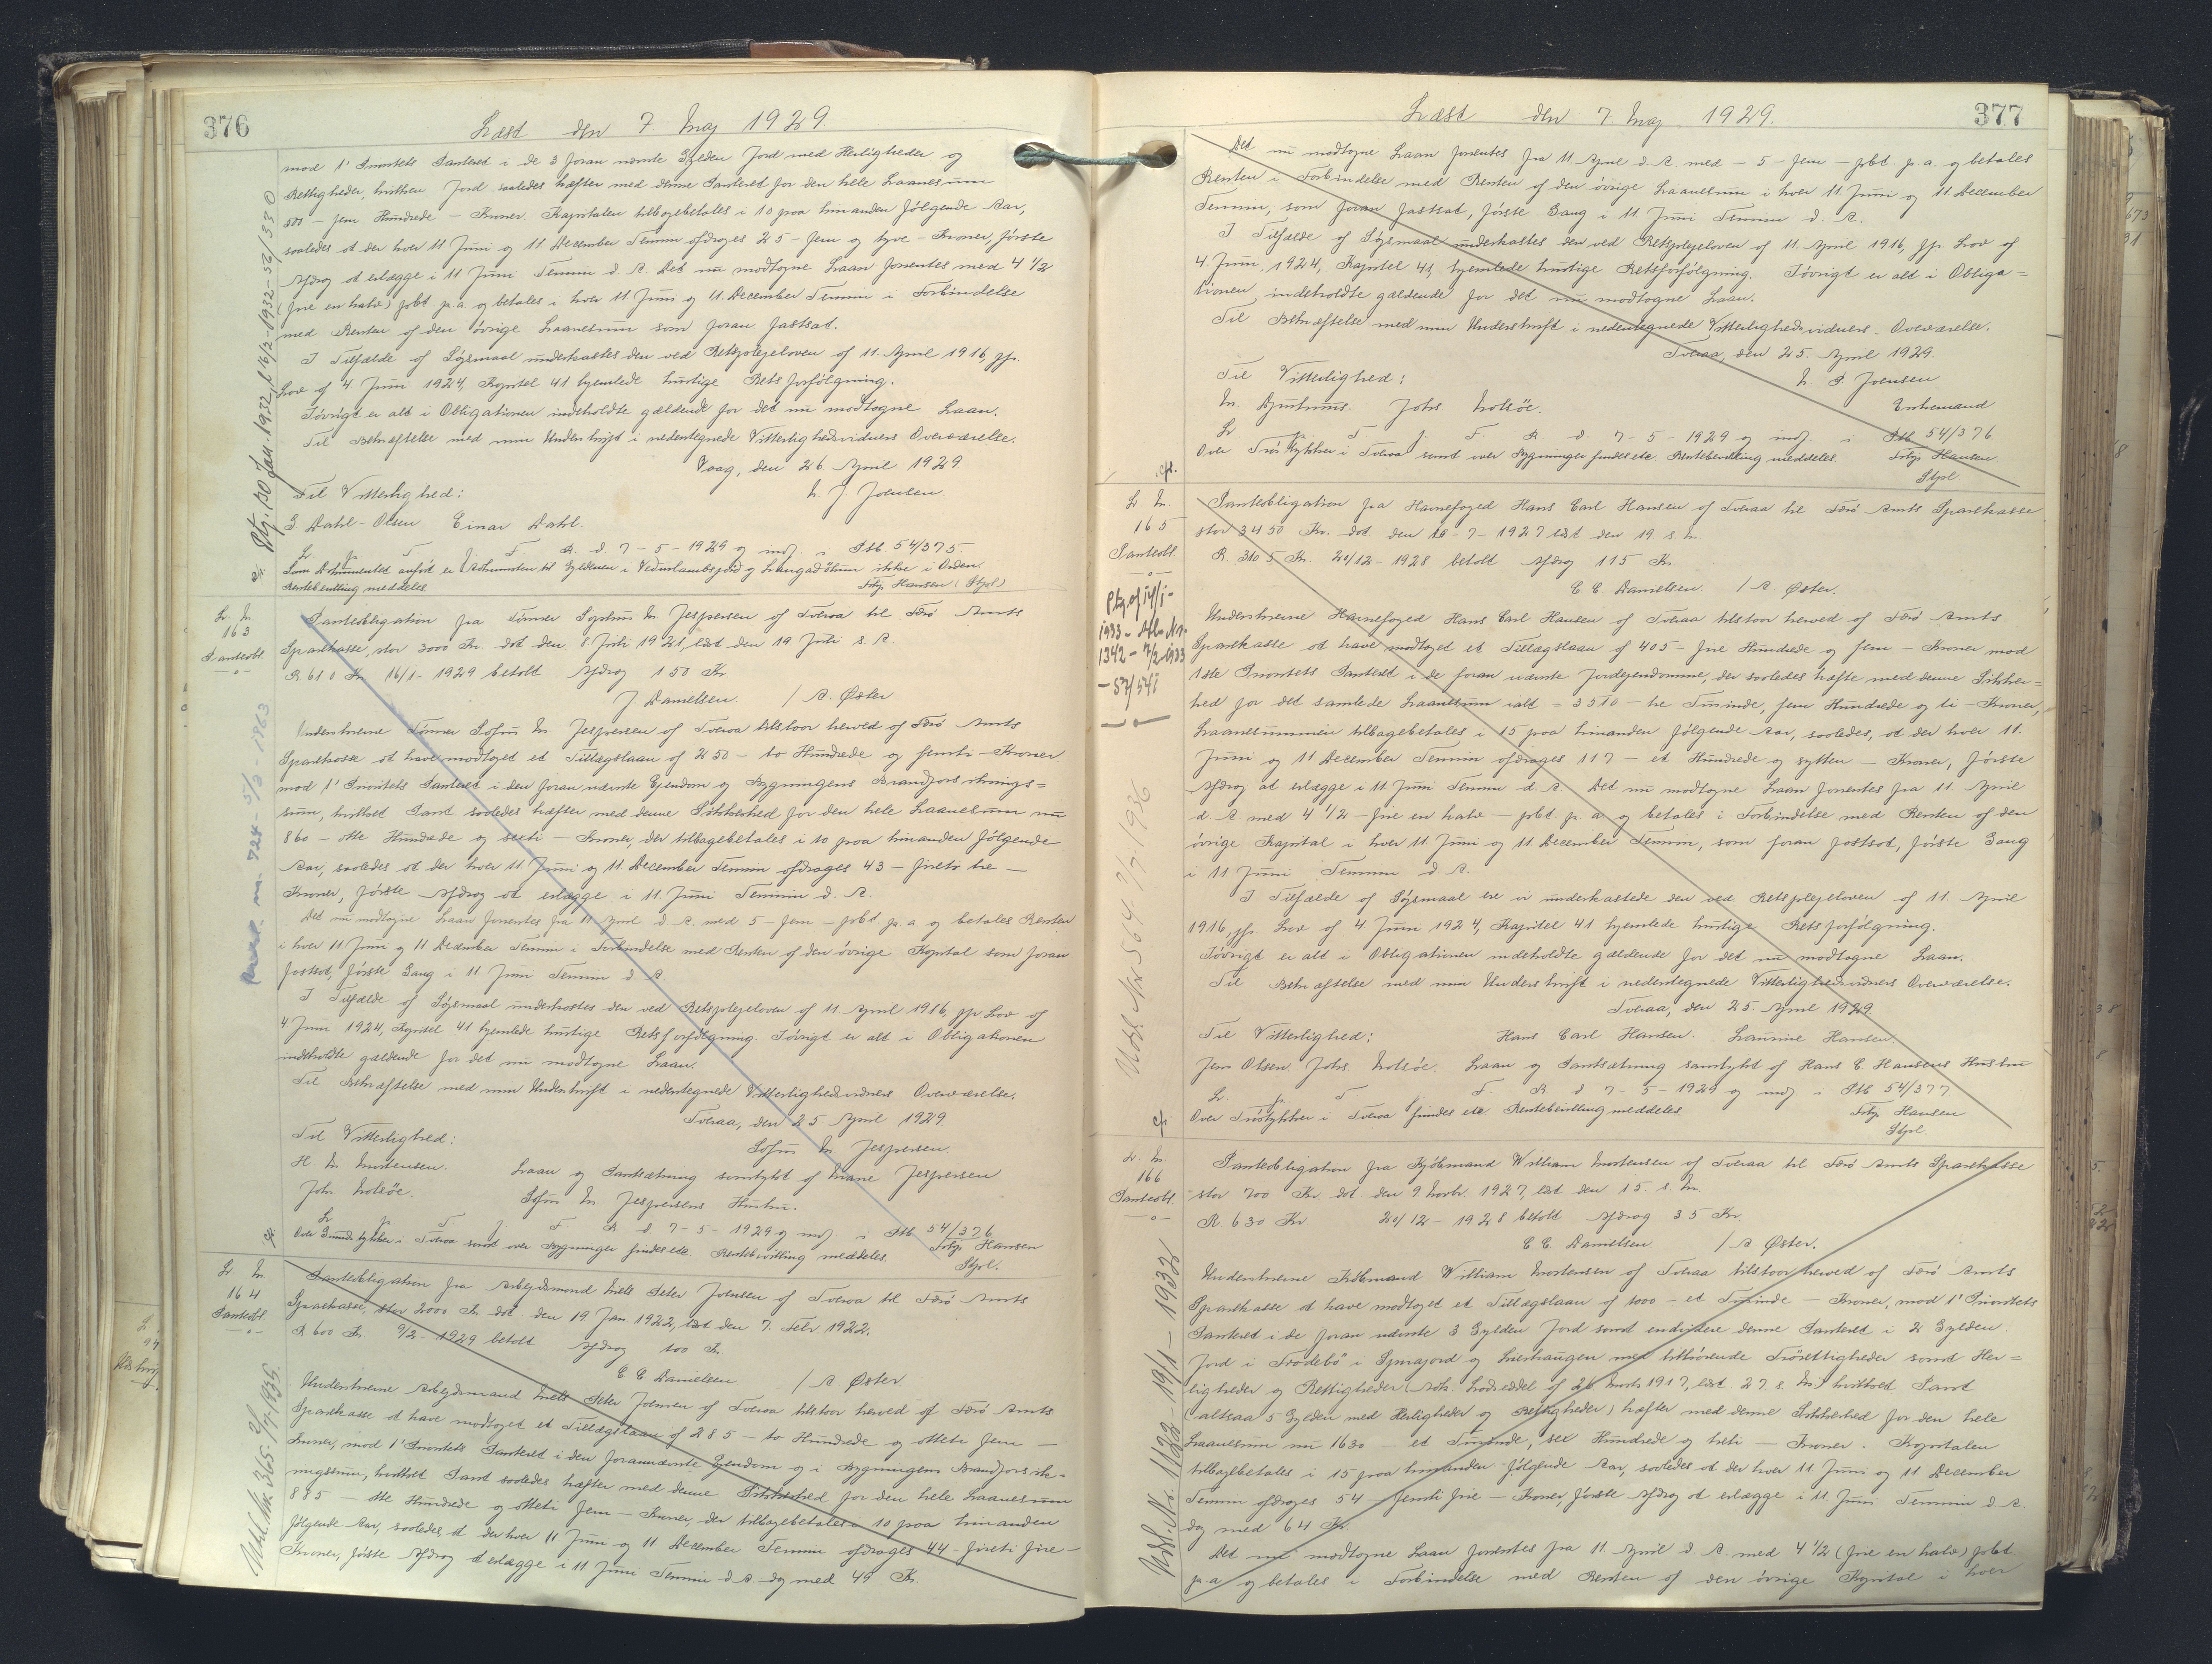 376
Læst den 7 Maj 1929
mod 1' Prioritets Panteret i de 3 foran nævnte Gylden Jord med Herligheder og
Rettigheder, hvilken Jord saaledes hæfter med denne Panteret for den hele Laanesum
500 - fem Hundrede - Kroner. Kapitalen tilbagebetales i 10 paa hinanden følgende Aar,
saaledes at der hver 11 Juni og 11 December Termin afdrages 25 - fem og tyve - Kroner, første
Afdrag at erlægge i 11 Juni Termin d. A. Det nu modtagne Laan forrentes med 4 1/2
(fire en halv) pCt p. a og betales i hver 11 Juni og 11 December Termin i Forbindelse
med Renten af den øvrige Laanesum som foran fastsat.
I Tilfælde af Søgsmaal underkastes den ved Retsplejeloven af 11. April 1916, jfr.
Lov af 4 Juni 1924, Kapitel 41 hjemlede hurtige Retsforfølgning.
Iøvrigt er alt i Obligationen indeholdte gældende for det nu modtagne Laan.
Til Bekræftelse med min Underskrift i nedentegnede Vitterlighedsvidners Overværelse.
Vaag, den 26 April 1929
Til Vitterlighed: N. J. Joensen.
S Dahl-Olsen Einar Dahl.
L p T. f F. R. d 7-5-1929 og indf. i Ptb 54/375.
Som Dokumentet anført er Adkomsten til Gyldenen i Vedurlambsgerd og Langadøtum ikke i Orden.
Rentebevilling meddeles. Frtz Hansen (Stpl)
L. N.
163
Panteobl.
Panteobligation fra Tømrer Sophus M Jespersen af Tveraa til Færø Amts
Sparekasse, stor 3000 Kr. dat den 8 Juli 1921, læst den 19 Juli s. A.
R 610 Kr 16/1-1929 betalt Afdrag 150 Kr
J. Danielsen / A. Øster
Undertegnede Tømrer Sofus M Jespersen af Tveraa tilstaar herved af Færø Amts
Sparekasse at have modtaget et Tillægslaan af 250 - to Hundrede og femti - Kroner
mod 1' Prioritets Panteret i den foran nævnte Ejendom og Bygningens Brandforsikrings=
sum, hvilket Pant saaledes hæfter med denne Sikkerhed for den hele Laanesum nu
860 - otte Hundrede og seksti - Kroner, der tilbagebetales i 10 paa hinanden følgende
Aar, saaledes at der hver 11 Juni og 11 December Termin afdrages 43 - fireti tre -
Kroner, første Afdrag at erlægge i 11 Juni Termin d. A.
Det nu modtagne Laan forrentes fra 11 April d A. med 5 - fem - pCt p. a og betales Renten
i hver 11 Juni og 11 December Termin i Forbindelse med Renten af den øvrige Kapital som foran
fastsat, første Gang i 11 Juni Termin d. A
I Tilfælde af Søgsmaal underkastes den ved Retsplejeloven af 11 April 1916, jfr Lov af
4 Juni 1924, Kapitel 41 hjemlede hurtige Retsforfølgning. Iøvrigt er alt i Obligationen
indeholdte gældende for det nu modtagne Laan.
Til Bekræftelse med min Underskrift i nedentegnede Vitterlighedsvidners Overværelse.
Tveraa, den 25 April 1929.
Til Vitterlighed: Sofus M Jespersen.
H M Mortensen. Laan og Pantsætning samtykt af Jespersen
Johs Nolsøe. Sofus M Jespersens Hustru.
L p T. f F. R d 7-5-1929 og indf i Ptb 54/376
Over Grundstykker i Tveraa samt over Bygninger findes etc. Rentebevilling meddeles. Frtz Hansen
Stpl.
L N.
164
Panteobl.
Panteobligation fra Arbejdsmand Niels Peter Joensen af Tveraa til Færø Amts
Sparekasse, stor 2000 Kr. dat den 19 Jan 1922, læst den 7. Febr. 1922.
R 600 Kr. 9/2-1929 betalt Afdrag 100 Kr.
C C Danielsen / A Øster
Undertegnede Arbejdsmand Niels Peter Joensen af Tveraa tilstaar herved af Færø Amts
Sparekasse at have modtaget et Tillægslaan af 285 - to Hundrede og otteti fem -
Kroner, mod 1' Prioritets Panteret i den forannævnte Ejendom og i Bygningens Brandforsik=
ringssum, hvilket Pant saaledes hæfter med denne Sikkerhed for den hele Laanesum
885 - otte Hundrede og otteti fem - Kroner, der tilbagebetales i 10 paa hinanden
følgende Aar, saaledes at der hver 11 Juni og 11 December Termin afdrages 44 - fireti fire -
Kroner, første Afdrag at erlægge i 11 Juni Termin d. A dog med 49 Kr.
Ptg. 130 Jan. 1932, 16/2-1932-56/133
724 - 5/3-1963
Udsl. Nr. 365. 2/7.1935.
377
Læst den 7 Maj 1929.
Det nu modtagne Laan forrentes fra 11 April d. A. med - 5 - fem - pCt. p. a. og betales
Renten i Forbindelse med Renten af den øvrige Laanesum i hver 11. Juni og 11. December
Termin, som foran fastsat, første Gang i 11 Juni Termin d. A.
I Tilfælde af Søgsmaal underkastes den ved Retsplejeloven af 11. April 1916, jfr. Lov af
4. Juni 1924, Kapitel 41, hjemlede hurtige Retsforfølgning. Iøvrigt er alt i Obliga=
tionen indeholdte gældende for det nu modtagne Laan.
Til Bekræftelse med min Underskrift i nedentegnede Vitterlighedsvidners Overværelse.
Tveraa, den 25. April 1929.
Til Vitterlighed: N. P Joensen
M. Djurhuus. Johs Nolsøe. Enkemand
L p. T f. F. R d. 7-5-1929 og indf. i Ptb 54/376.
Over Grdstykker i Tveraa samt over Bygninger findes etc. Rentebevilling meddeles. Frtz Hansen
Stpl
L N.
165
Panteobl.
Panteobligation fra Havnefoged Hans Carl Hansen af Tveraa til Færø Amts Sparekasse
stor 3450 Kr. dat den 18-7-1927 læst den 19. s. M.
R. 3105 Kr. 20/12-1928 betalt Afdrag 115 Kr.
C C Danielsen. / A Øster.
Undertegnede Havnefoged Hans Carl Hansen af Tveraa tilstaar herved af Færø Amts
Sparekasse at have modtaget et Tillægslaan af 405 - fire Hundrede og fem - Kroner mod
1ste Prioritets Panteret i de foran nævnte Jordejendomme, der saaledes hæfte med denne Sikker=
hed for det samlede Laanesum ialt = 3510 - tre Tusinde, fem Hundrede og ti - Kroner,
Laanesummen tilbagebetales i 15 paa hinanden følgende Aar, saaledes, at der hver 11.
Juni og 11 December Termin afdrages 117 - et Hundrede og sytten - Kroner, første
Afdrag at erlægge i 11 Juni Termin d. A. Det nu modtagne Laan forrentes fra 11 April
d A med 4 1/2 - fire en halv - pCt. p. a og betales i Forbindelse med Renten af den
øvrige Kapital i hver 11 Juni og 11 December Termin, som foran fastsat, første Gang
i 11 Juni Termin d A.
I Tilfælde af Søgsmaal ere vi underkastede den ved Retsplejeloven af 11. April
1916, jfr. Lov af 4 Juni 1924, Kapitel 41 hjemlede hurtige Retsforfølgning.
Iøvrigt er alt i Obligationen indeholdte gældende for det nu modtagne Laan.
Til Bekræftelse med min Underskrift i nedentegnede Vitterlighedsvidners Overværelse.
Tveraa, den 25. April 1929
Til Vitterlighed: Hans Carl Hansen. Hansen.
Jens Olsen Johs Nolsøe. Laan og Pantsætning samtykt af Hans C Hansens Hustru
L. p. T f F. R d 7-5-1929 og indf i Ptb 54/377
Over Grdstykker i Tveraa findes etc Rentebevilling meddeles Frtz Hansen
Stpl.
L. N.
166
Panteobl.
Panteobligation fra Kjøbmand William Mortensen af Tveraa til Færø Amts Sparekasse
stor 700 Kr. dat den 9. Novbr. 1927, læst den 15. s. M.
R 630 Kr 20/12-1928 betalt Afdrag 35 Kr.
C C. Danielsen / A Øster.
Undertegnede Købmand William Mortensen af Tveraa tilstaar herved af Færø Amts
Sparekasse at have modtaget et Tillægslaan af 1000 - et Tusinde - Kroner, mod 1' Prioritets
Panteret i de foran nævnte 3 Gylden Jord samt endvidere denne Panteret i 2 Gylden
Jord i Frodebø i og med tilhørende Rettigheder samt Her=
ligheder og Rettigheder (Adk. Lodseddel af 26 1917, læst 27 s. M.) hvilket Pant
(altsaa 5 Gylden med Herligheder og Rettigheder) hæfter med denne Sikkerhed for den hele
Laanesum nu 1630 - et Tusinde, sex Hundrede og treti - Kroner. Kapitalen
tilbagebetales i 15 paa hinanden følgende Aar, saaledes at der hver 11 Juni og 11 December
Termin afdrages 54 - femti fire - Kroner, første Afdrag at erlægge i 11. Juni Termin d. A.
dog med 64 Kr
Det nu modtagne Laan forrentes fra 11. April d. A. med 4 1/2 (fire en halv) pCt
p. a og betales i Forbindelse med Renten af den øvrige Kapital i hver
Ptg. af 14/1-
1933 - Nr.
1342 - 7/2-1933
- 57/541
Udsl. Nr 564 2/7.1936
Udsl. Nr. 1122 - 19/1 - 1932